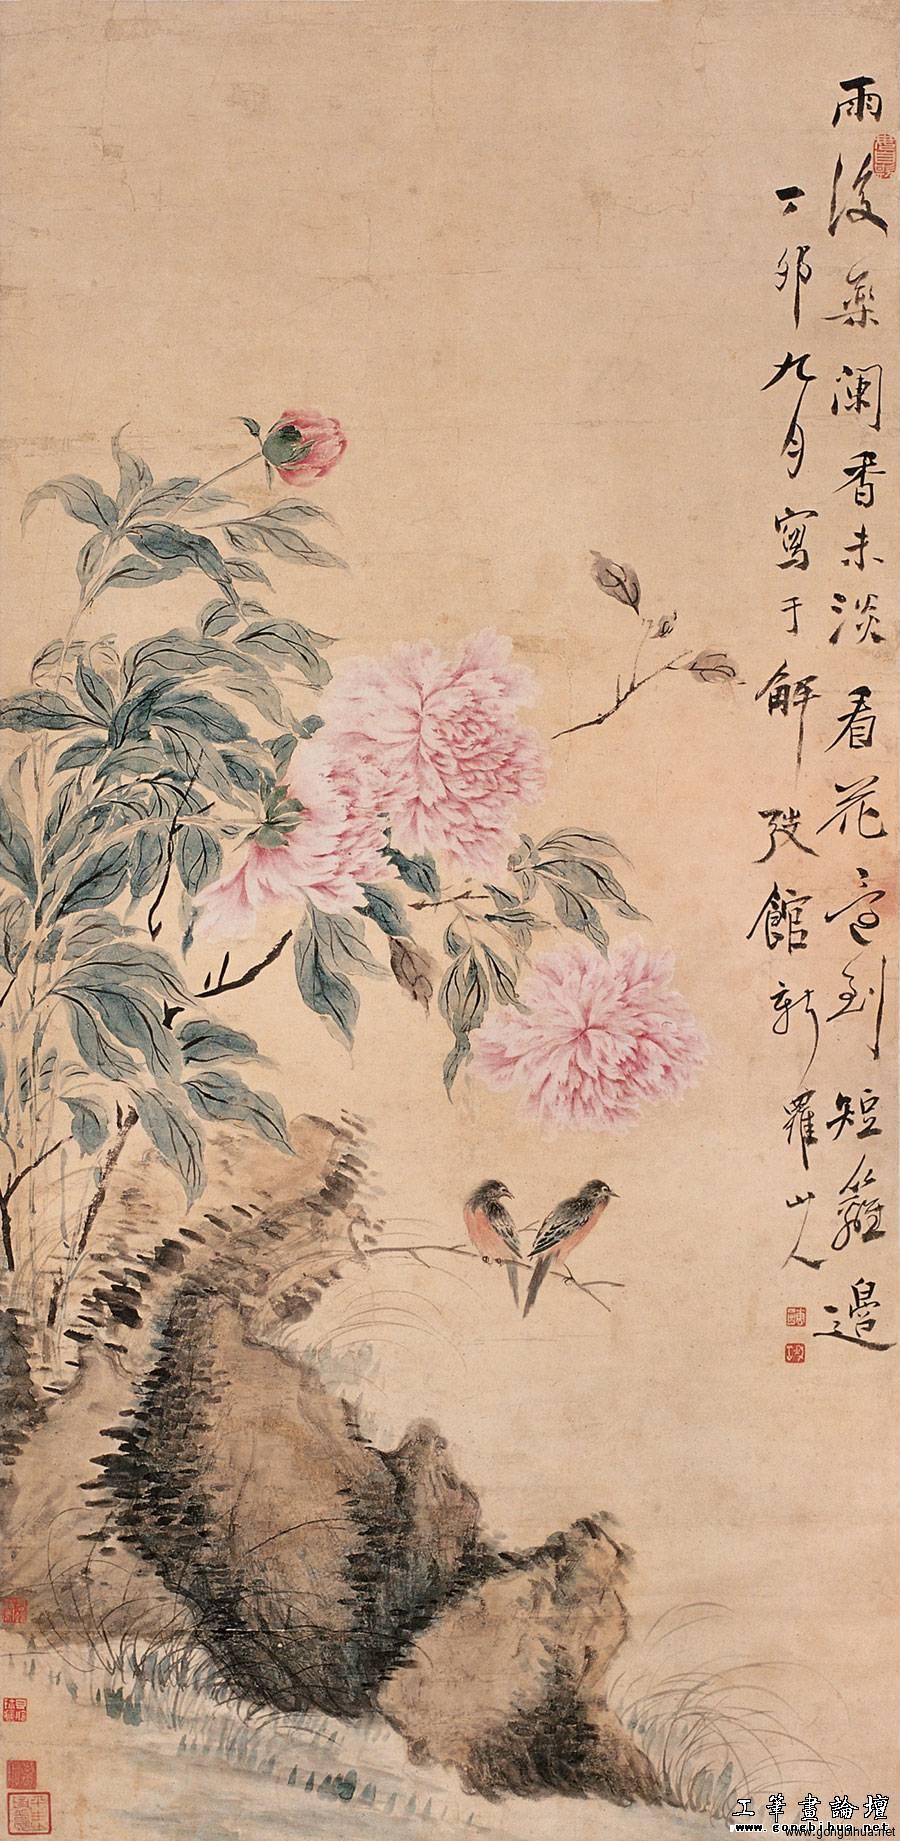 雨後藥瀾香未淡看花意到短籬邊
丁卯九月寫于解弢館新羅山人
工筆畫論壇
www.gongbihua.net
www.gongbihua.net